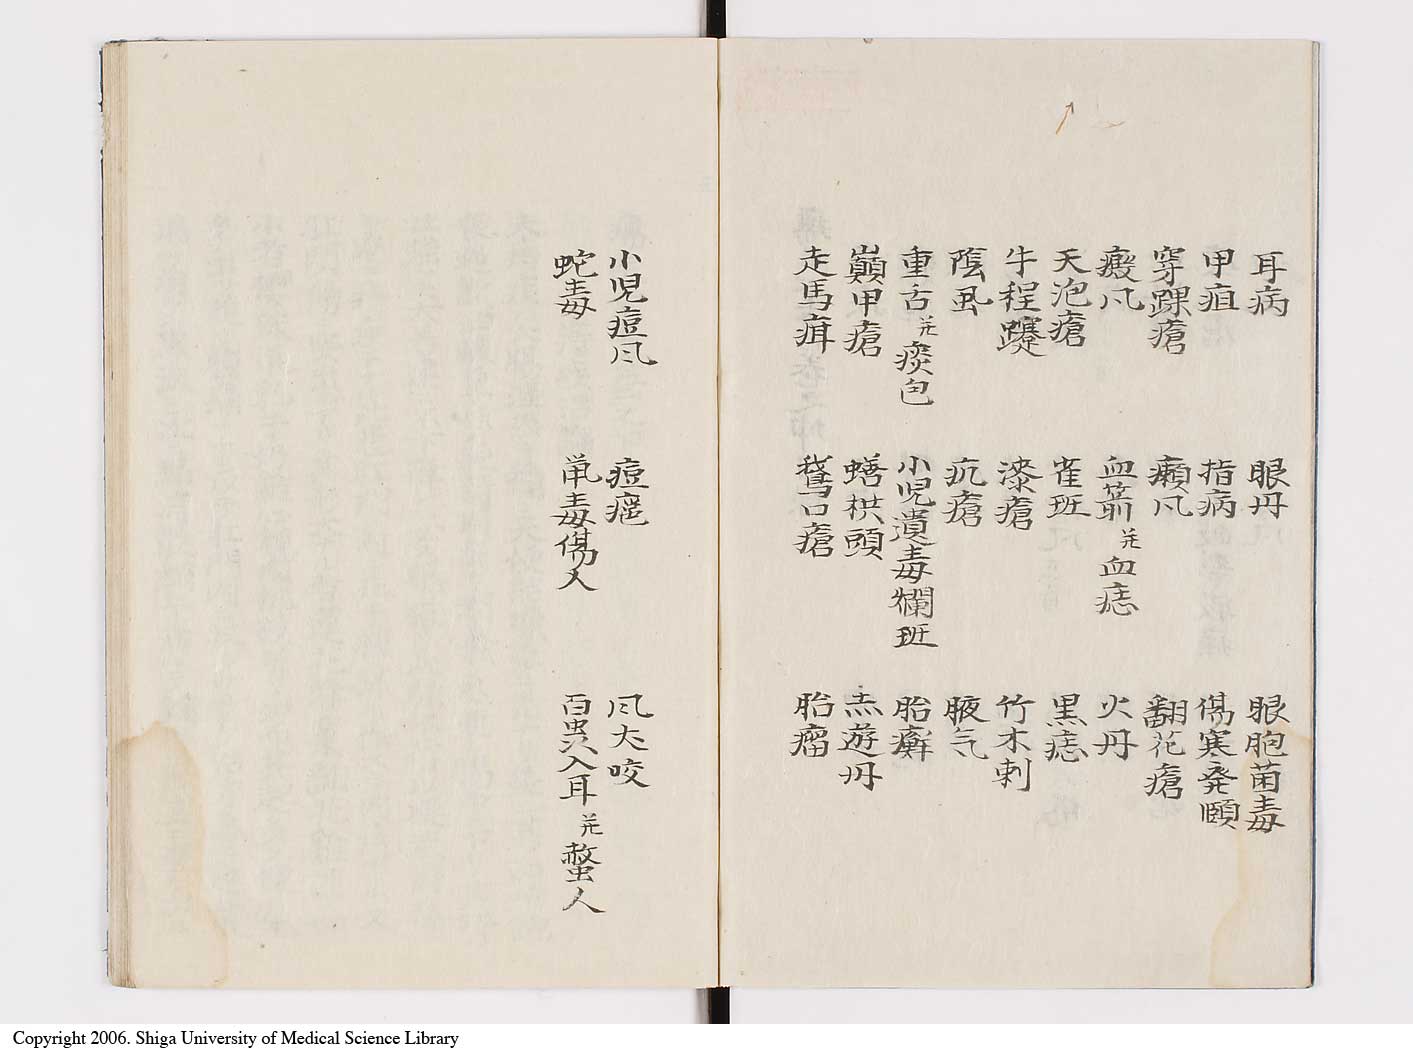 耳病　眼丹　眼胞菌毒
甲疽　指病　傷寒発頤
穿踝瘡　癩风　翻花瘡
癜风　血箭並血痣　火丹
天泡瘡　雀班　黒痣
牛程蹇　漆瘡　竹木刺
陰虱　疣瘡　腋気
重舌並痰包　小児遺毒爛班　胎癬
巔甲瘡　蟮栱頭　赤遊丹
走馬疳　鵞口瘡　胎瘤
小児痘风　痘瘢　风犬咬
蛇毒　鼠毒傷人　百虫入耳並螫人
Copyright 2006. Shiga University of Medical Science Library